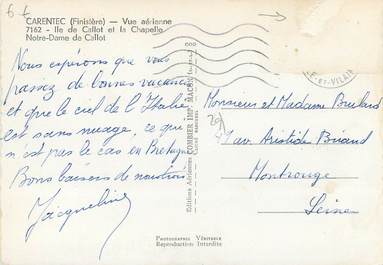 6 €
CARENTEC (Finistère) — Vue aérienne
7162 - Ile de Callot et la Chapelle
Notre-Dame de Callot
Nous espérons que vous
passez de bonnes vacances
et que le ciel de l'Italie
est sans nuage, ce qui
n'est pas le cas en Bretagne
Bons baisers de nous trois
Jacqueline
Editions Aériennes COMBIER IMP. MACON
Photographie Véritable
Reproduction Interdite
ET-VILAINE
Monsieur et Madame
av. Aristide Briand
Montrouge
Seine